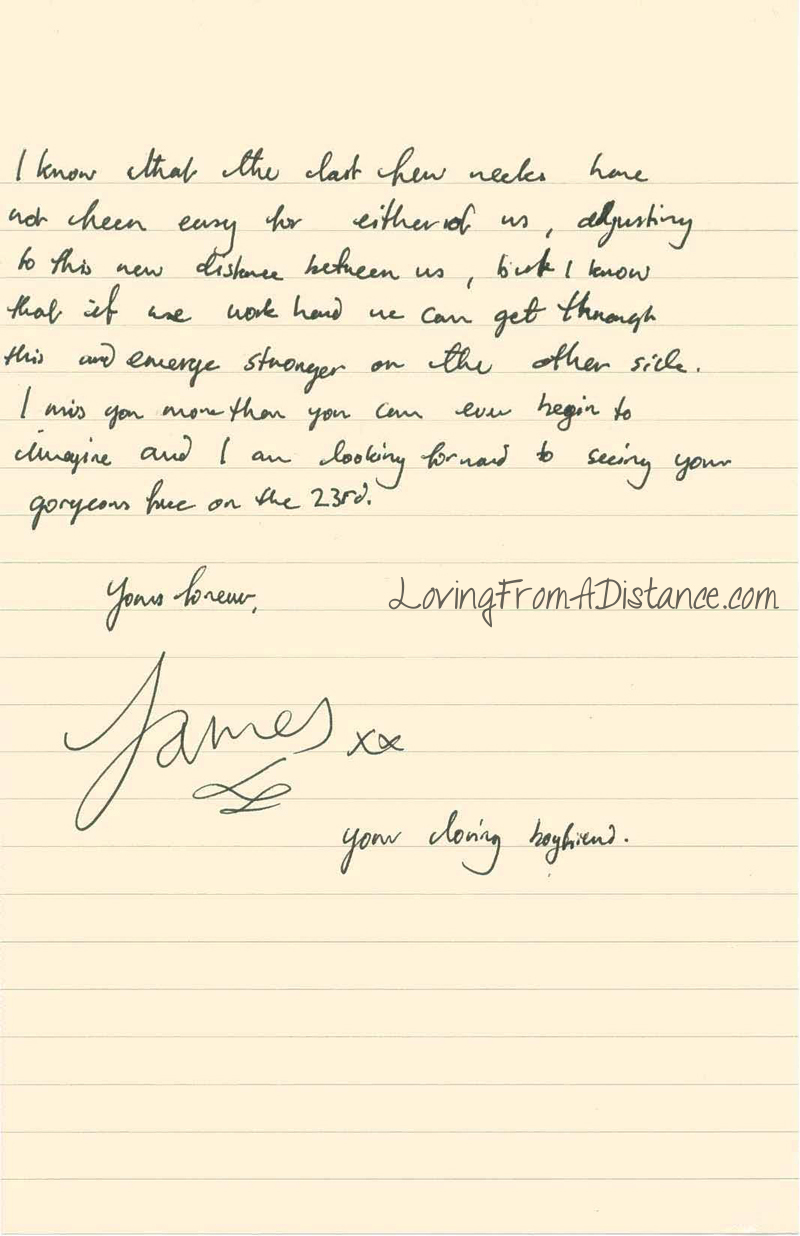 I know that the last few weeks have
not been easy for either of us, adjusting
to this new distance between us, but I know
that if we work hard we can get through
this and emerge stronger on the other side.
I miss you more than you can ever begin to
imagine and I am looking forward to seeing your
gorgeous face on the 23rd.
Yours forever,
LovingFromADistance.com
James xx
your loving boyfriend.